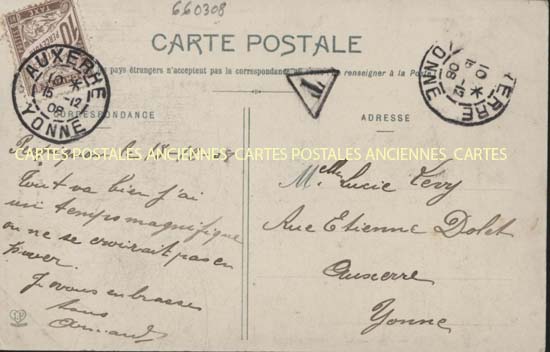 660308
CARTE POSTALE
pays étrangers n'acceptent pas la correspondance se renseigner à la Poste
AUXERRE
10
15 -12
08
YONNE
T
CORRESPONDANCE
ADRESSE
CARTES POSTALES ANCIENNES CARTES POSTALES ANCIENNES CARTES
Tout va bien j'ai
un temps magnifique
on ne se croirait pas en
Je vous embrasse
tous
Armand
Melle Lucie Levy
Rue Etienne Dolet
Auxerre
Yonne